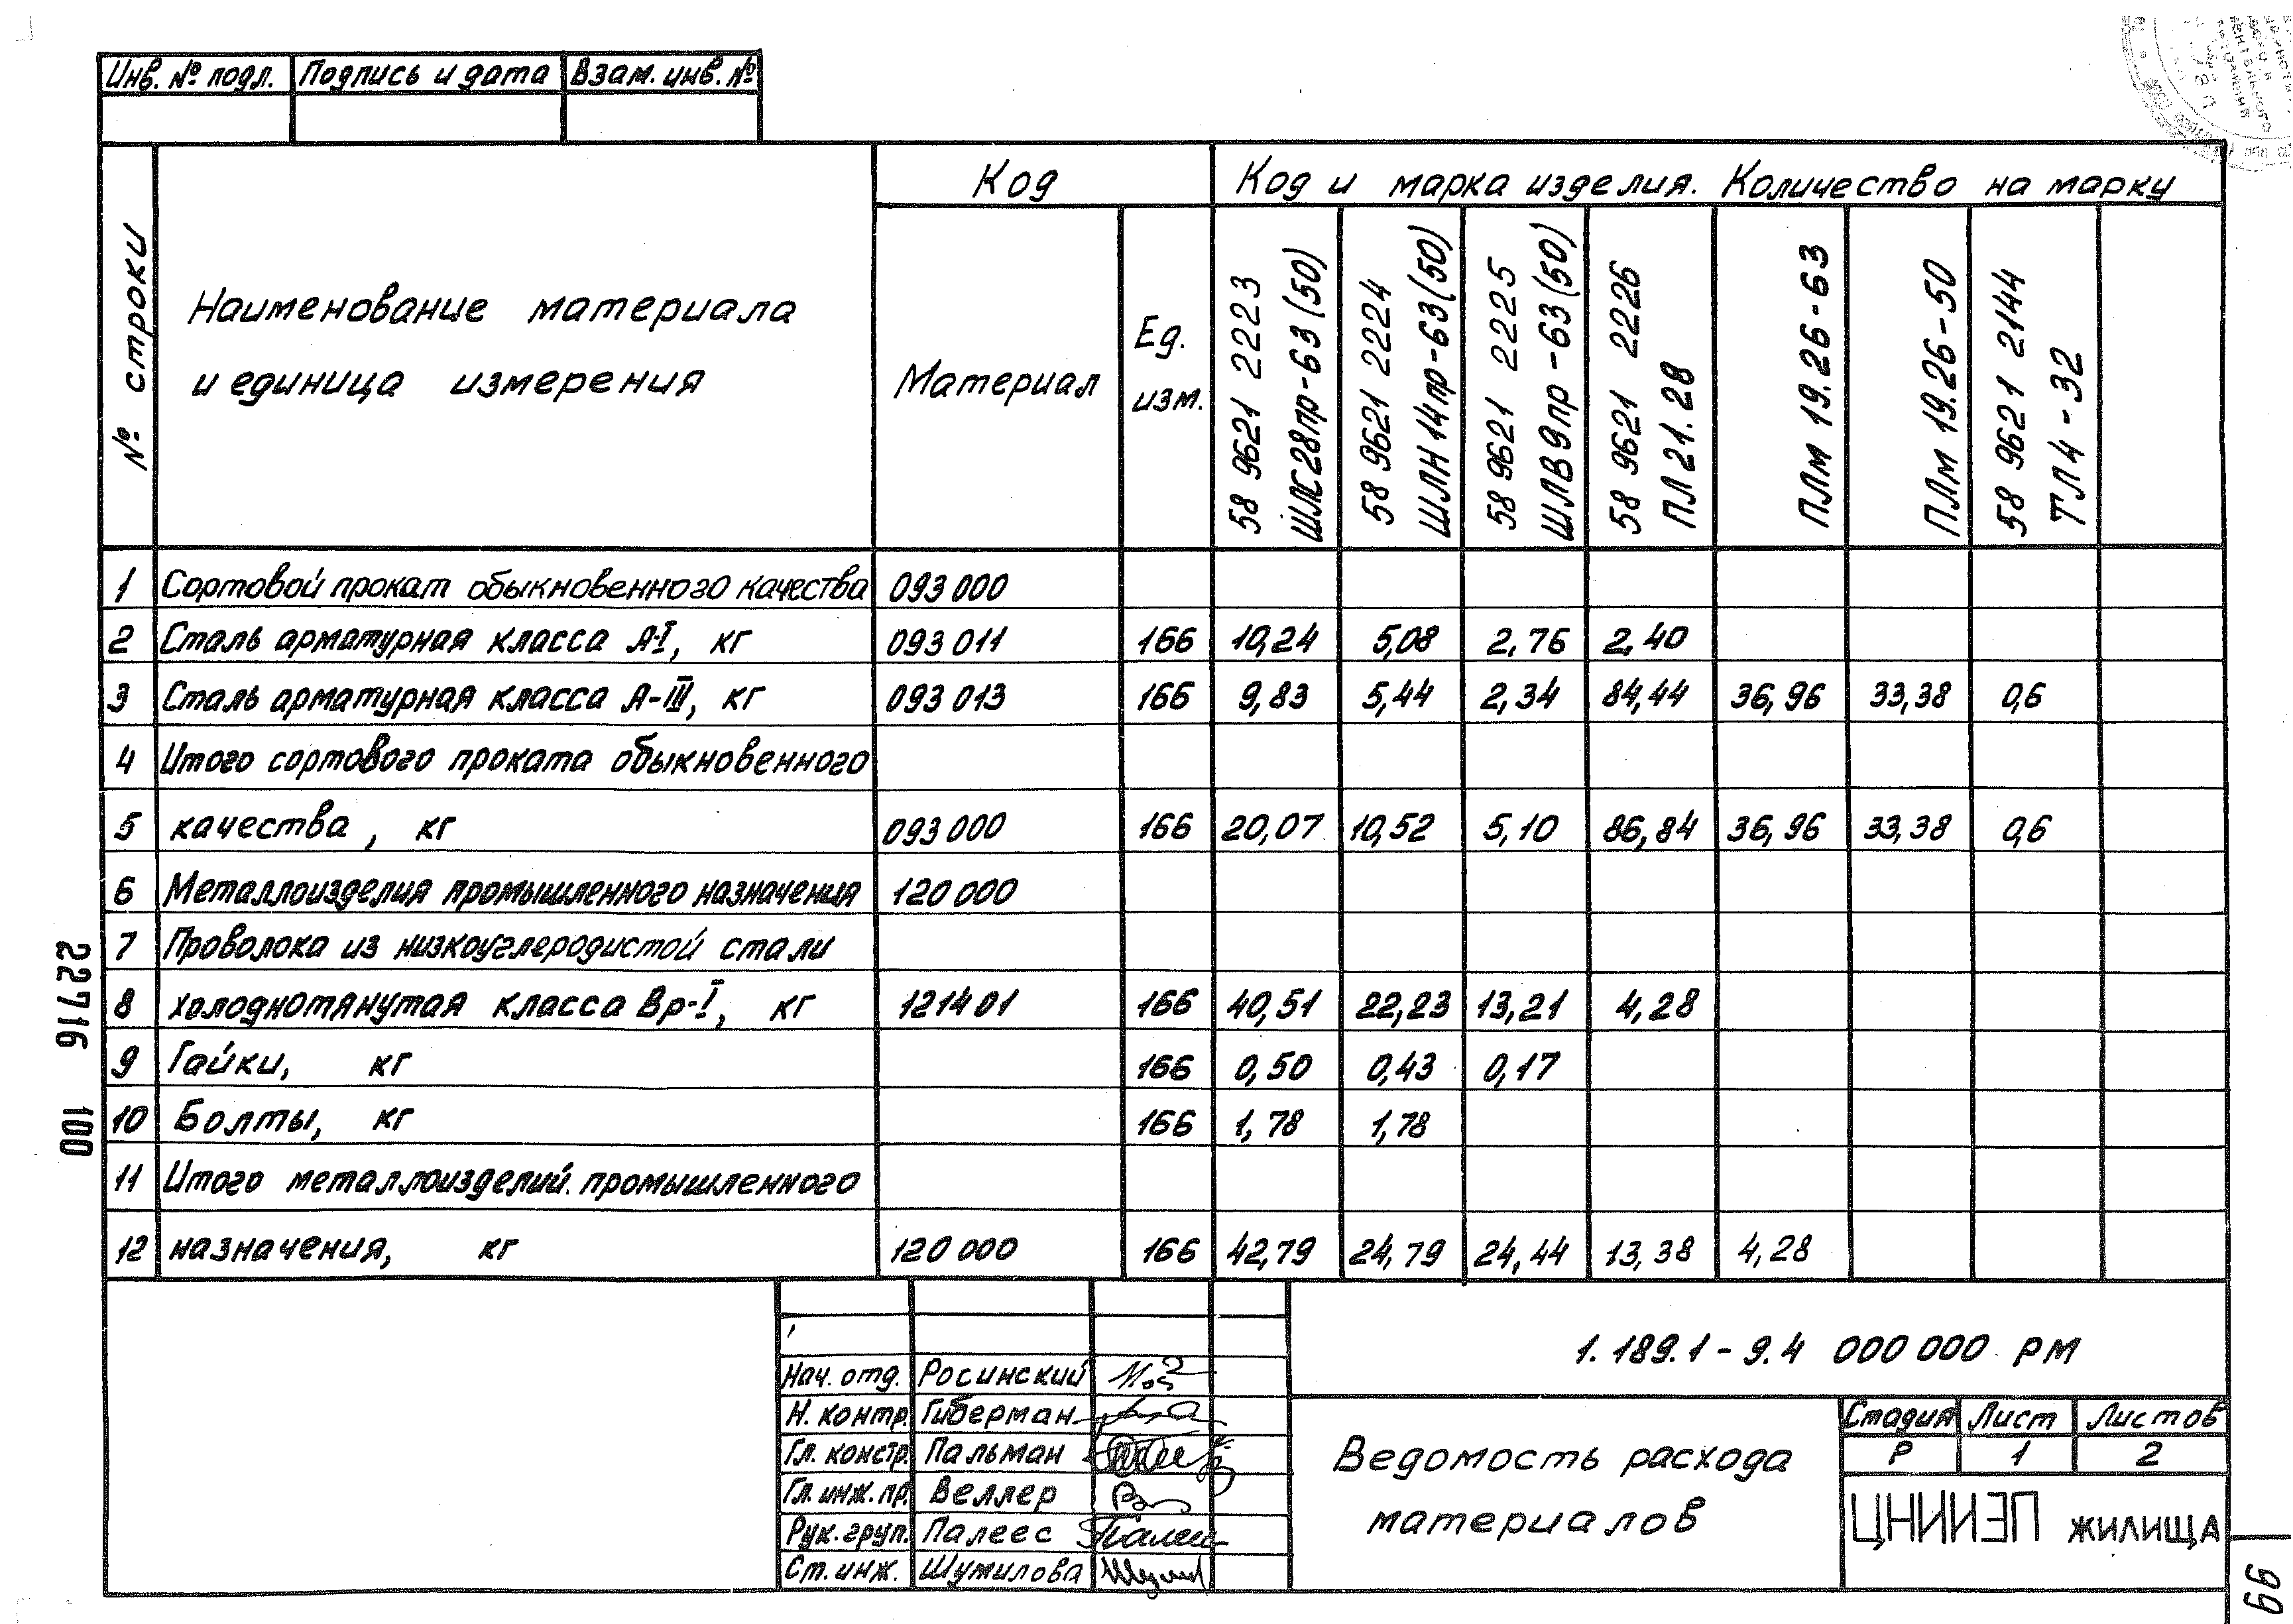 Инв. № подл. Подпись и дата Взам. инв. №
№ строки Наименование материала и единица измерения Код Код и марка изделия. Количество на марку
Материал Ед. изм. 58 9621 2223 ШЛС28пр-63(50) 58 9621 2224 ШЛН14пр-63(50) 58 9621 2225 ШЛВ9пр-63(50) 58 9621 2226 ПЛ21.28 ПЛм 19.26-63 ПЛм 19.26-50 58 9621 2144 ТЛ4-32
1 Сортовой прокат обыкновенного качества 093 000
2 Сталь арматурная класса А-I, кг 093 011 166 10,24 5,08 2,76 2,40
3 Сталь арматурная класса А-III, кг 093 013 166 9,83 5,44 2,34 84,44 36,96 33,38 0,6
4 Итого сортового проката обыкновенного
5 качества, кг 093 000 166 20,07 10,52 5,10 86,84 36,96 33,38 0,6
6 Металлоизделия промышленного назначения 120 000
7 Проволока из низкоуглеродистой стали
8 холоднотянутая класса Вр-I, кг 121401 166 40,51 22,23 13,21 4,28
9 Гайки, кг 166 0,50 0,43 0,17
10 Болты, кг 166 1,78 1,78
11 Итого металлоизделий промышленного
12 назначения, кг 120 000 166 42,79 24,79 24,44 13,38 4,28
22716 100
1.189.1-9.4 000 000 РМ
Нач. отд. Росинский
Н. контр. Гиберман
Гл. констр. Пальман
Гл. инж. пр. Веллер
Рук. груп. Палеес
Ст. инж. Шумилова
Ведомость расхода
материалов
Стадия Лист Листов
Р 1 2
ЦНИИЭП жилища
99